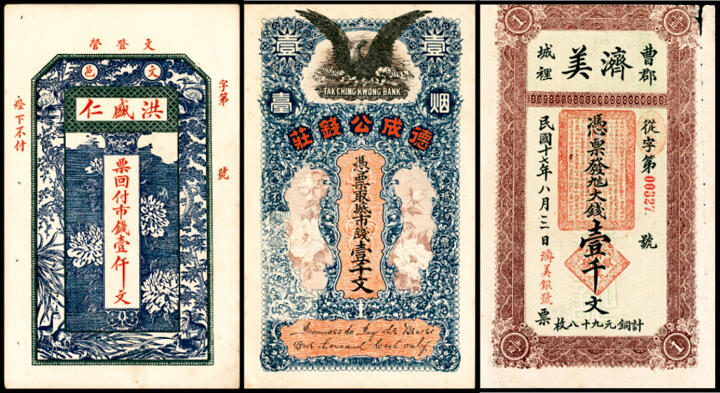 文登營
文邑
洪盛仁
字第 號
票回付市錢壹仟文
燈下不付
壹 壹
TAK CHING KWONG BANK
烟臺
德成公錢莊
憑票取 市錢壹千文
Promises to Pay the Bearer
One thousand Cash only.
1 1
曹郡
城裡
濟美
從字第 00327 號
憑票發 大錢壹千文
民國十七年八月二日 濟美銀號票
計銅元九十八枚
1 1